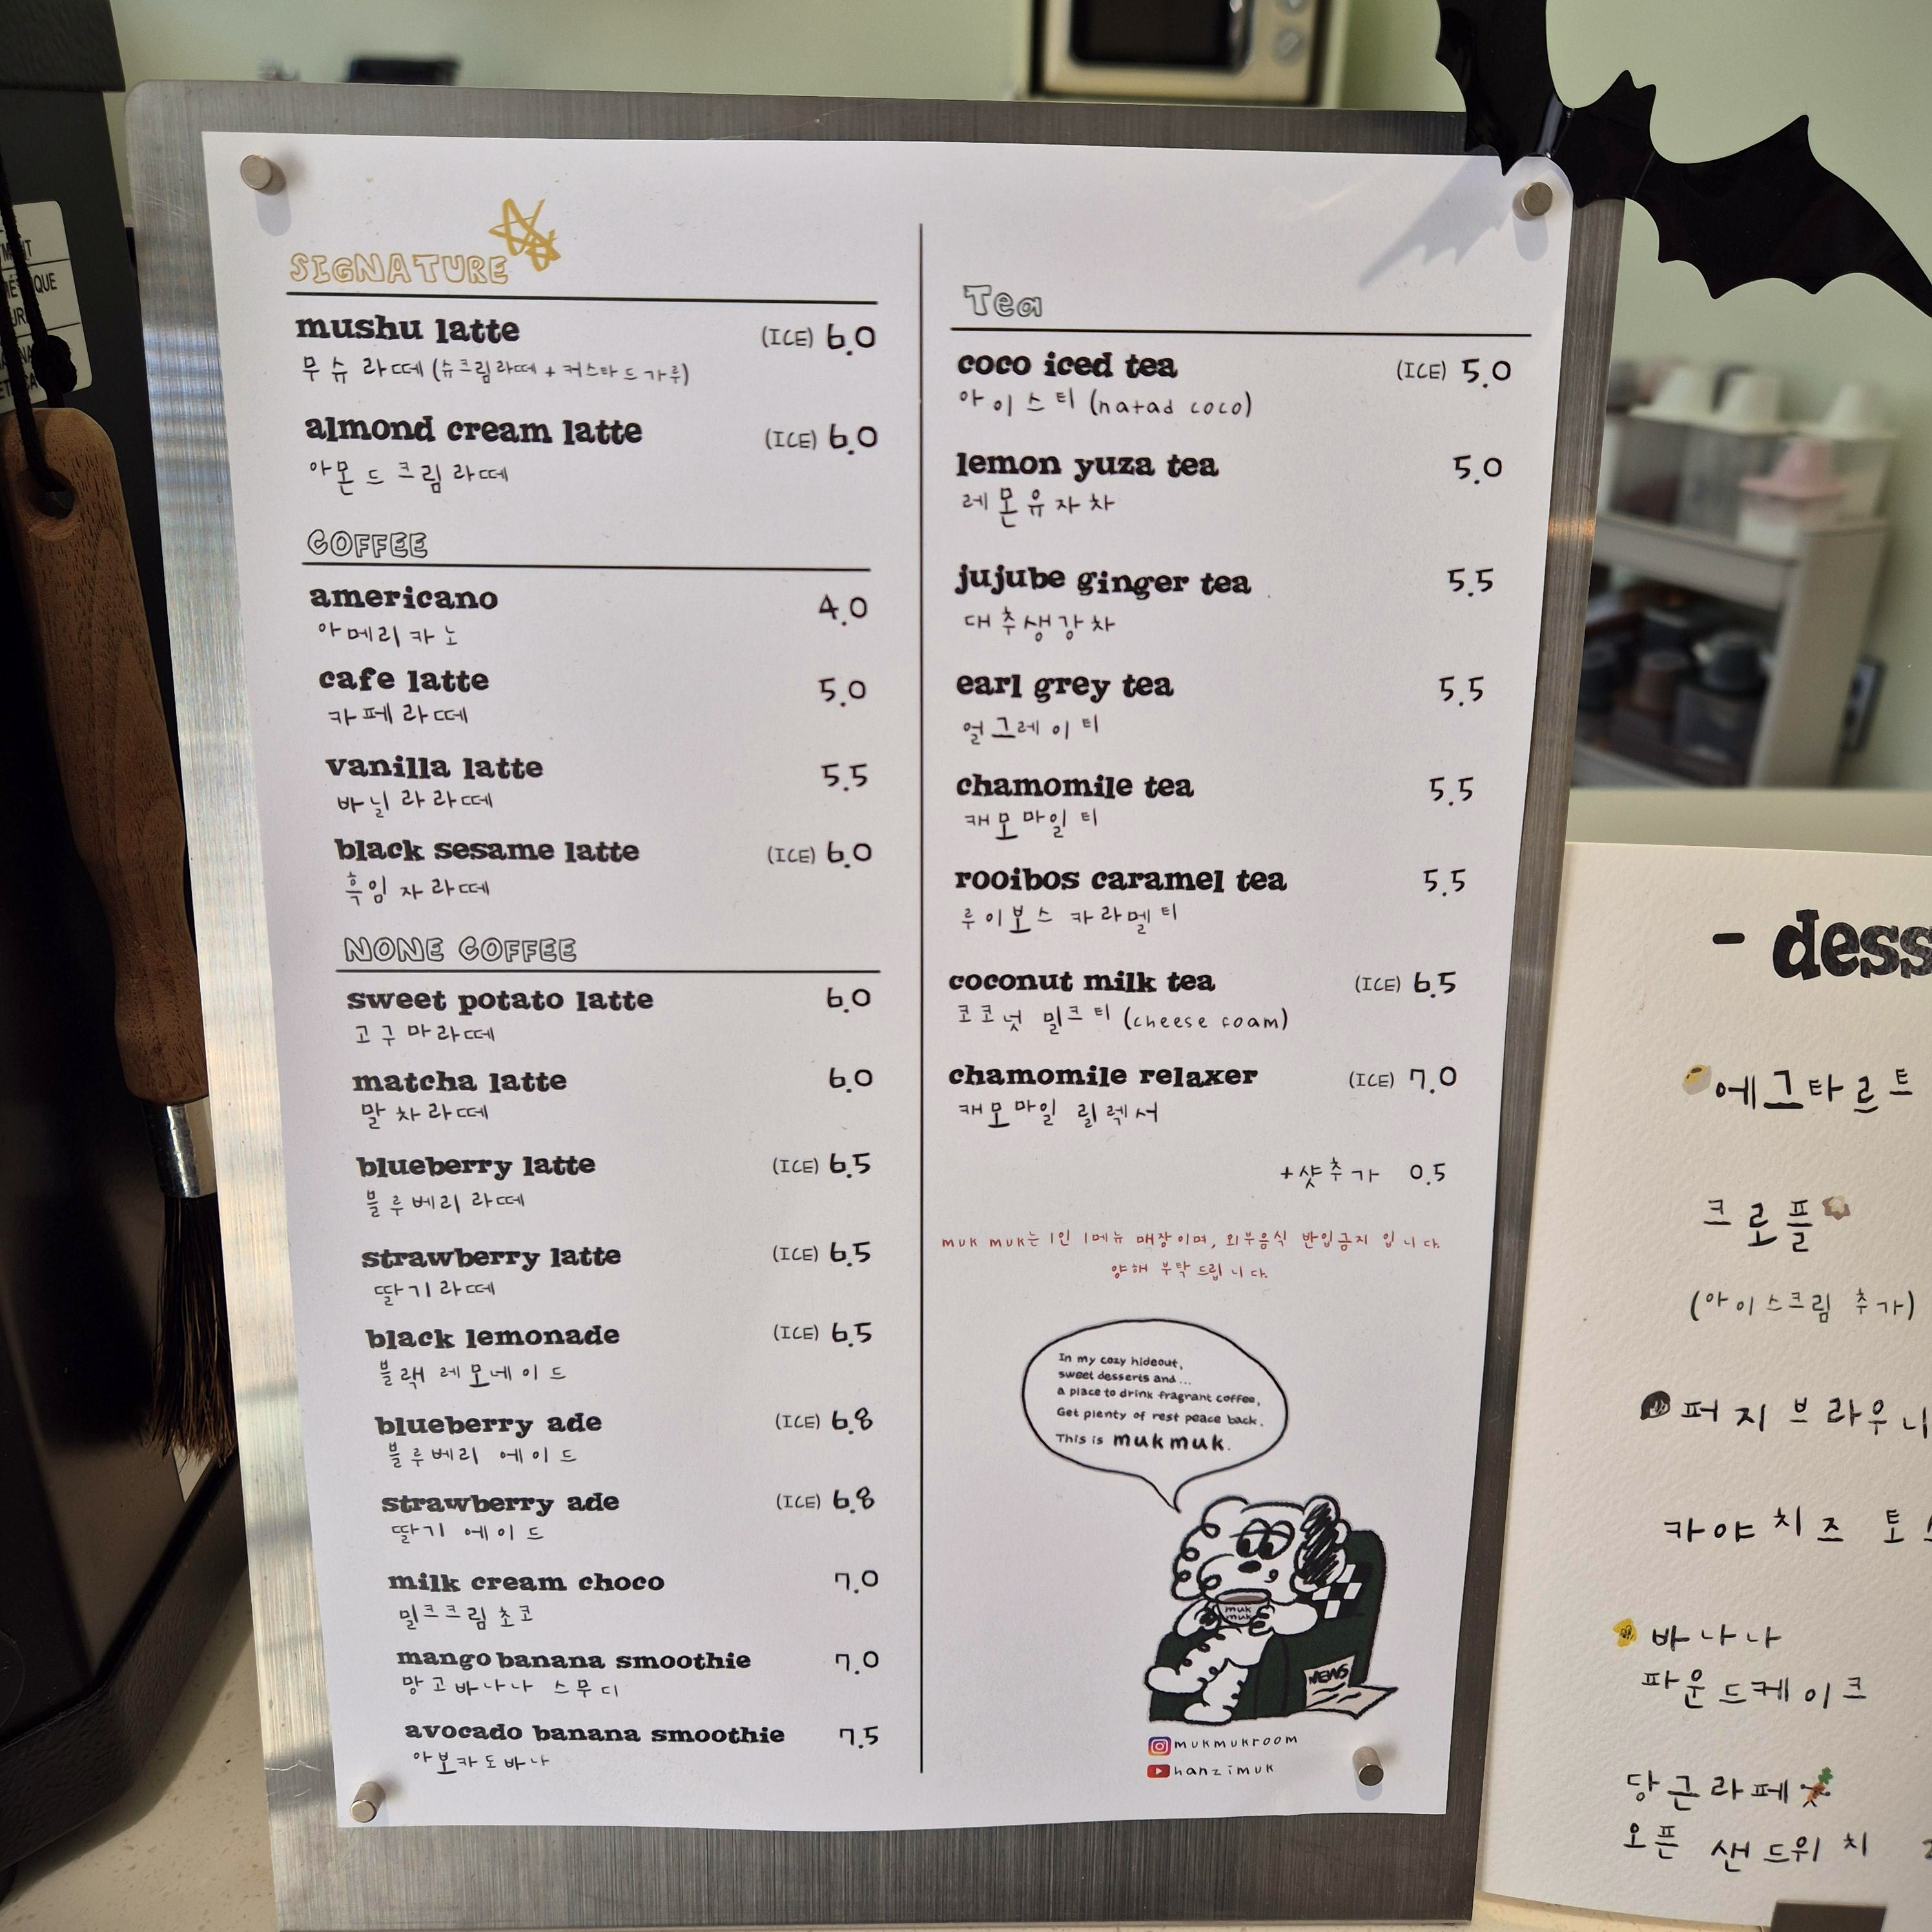 SIGNATURE
mushu latte (ICE) 6.0
무슈 라떼 (슈크림라떼 + 커스타드가루)
almond cream latte (ICE) 6.0
아몬드크림라떼
COFFEE
americano 4.0
아메리카노
cafe latte 5.0
카페라떼
vanilla latte 5.5
바닐라라떼
black sesame latte (ICE) 6.0
흑임자라떼
NONE COFFEE
sweet potato latte 6.0
고구마라떼
matcha latte 6.0
말차라떼
blueberry latte (ICE) 6.5
블루베리라떼
strawberry latte (ICE) 6.5
딸기라떼
black lemonade (ICE) 6.5
블랙 레모네이드
blueberry ade (ICE) 6.8
블루베리 에이드
strawberry ade (ICE) 6.8
딸기 에이드
milk cream choco 7.0
밀크크림초코
mango banana smoothie 7.0
망고바나나 스무디
avocado banana smoothie 7.5
아보카도바나
Tea
coco iced tea (ICE) 5.0
아이스티 (natad coco)
lemon yuza tea 5.0
레몬유자차
jujube ginger tea 5.5
대추생강차
earl grey tea 5.5
얼그레이티
chamomile tea 5.5
캐모마일티
rooibos caramel tea 5.5
루이보스 카라멜티
coconut milk tea (ICE) 6.5
코코넛 밀크티 (cheese foam)
chamomile relaxer (ICE) 7.0
캐모마일 릴렉서
+샷추가 0.5
muk muk는 1인 1메뉴 매장이며, 외부음식 반입금지 입니다.
양해 부탁드립니다.
In my cozy hideout,
sweet desserts and...
a place to drink fragrant coffee,
Get plenty of rest peace back.
This is mukmuk.
muk
muk
NEWS
mukmukroom
hanzimuk
- dess
에그타르트
크로플
(아이스크림 추가)
퍼지브라우니
카야치즈 토
바나나
파운드케이크
당근라페
오픈 샌드위치